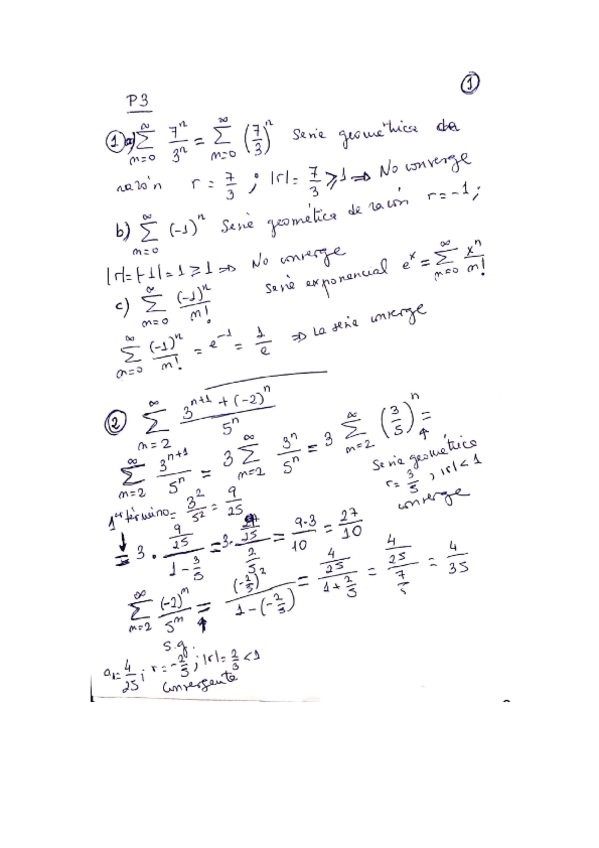 ①
P3
① a) ∑_{n=0}^{∞} 7^n/3^n = ∑_{n=0}^{∞} (7/3)^n Serie geométrica de
razón r = 7/3 ; |r| = 7/3 ≥ 1 ⇒ No converge
b) ∑_{n=0}^{∞} (-1)^n Serie geométrica de razón r = -1 ;
|r| = |-1| = 1 ≥ 1 ⇒ No converge
c) ∑_{n=0}^{∞} (-1)^n/n! Serie exponencial e^x = ∑_{n=0}^{∞} x^n/n!
∑_{n=0}^{∞} (-1)^n/n! = e^{-1} = 1/e ⇒ La serie converge
② ∑_{n=2}^{∞} (3^{n+1} + (-2)^n)/5^n
∑_{n=2}^{∞} 3^{n+1}/5^n = 3 ∑_{n=2}^{∞} 3^n/5^n = 3 ∑_{n=2}^{∞} (3/5)^n =
↑
Serie geométrica
r = 3/5 , |r| < 1
converge
1er término = 3^2/5^2 = 9/25
↓
= 3 · (9/25)/(1 - 3/5) = 3 · (9/25)/(2/5) = 9·3/10 = 27/10
∑_{n=2}^{∞} (-2)^n/5^n = (-2/5)^2/(1 - (-2/5)) = (4/25)/(1 + 2/5) = (4/25)/(7/5) = 4/35
↑
s.g.
a_1 = 4/25 ; r = -2/5 ; |r| = 2/5 < 1
convergente